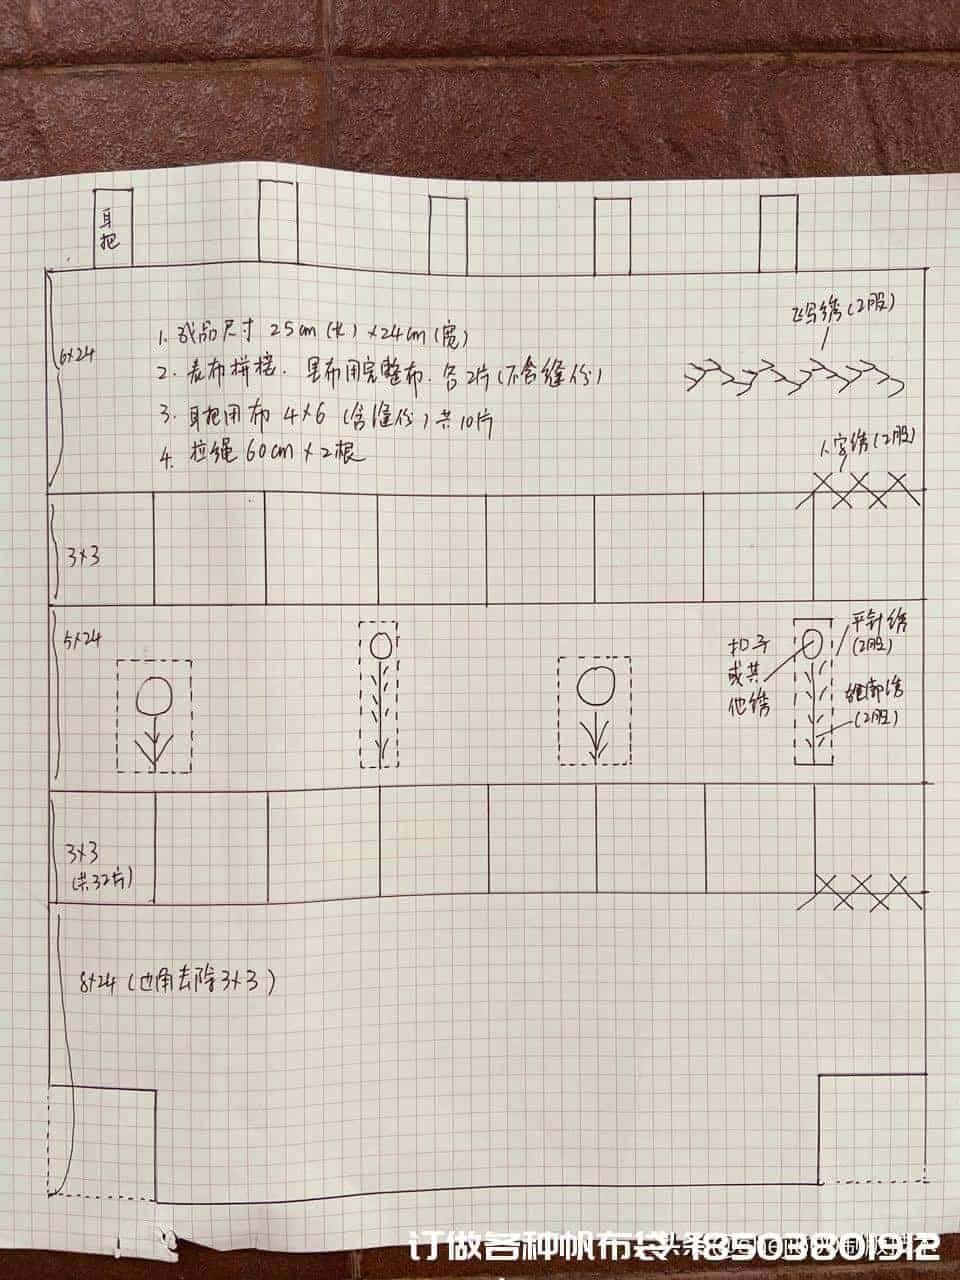 耳
把
6×24
1. 成品尺寸 25cm(长)×24cm(宽)
2. 表布拼接. 里布用完整布. 各2片(不含缝份)
3. 耳把用布 4×6 (含缝份)共10片
4. 拉绳 60cm×2根
飞鸟绣(2股)
人字绣(2股)
3×3
5×24
扣子
或其
他绣
平针绣
(2股)
(2股)
3×3
(共32片)
8×24 (边角去除3×3)
订做各种帆布袋
18503801912